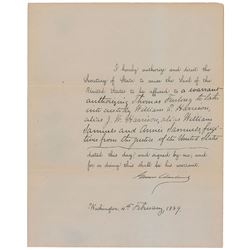 I hereby authorize and direct the
Secretary of State to cause the Seal of the
United States to be affixed to a warrant
authorizing Thomas Furlong to take
into custody William P. Harrison,
alias J. W. Harrison, alias William
Samuels and Annie Samuels, fugi-
tives from the justice of the United States
dated this day and signed by me; and
for so doing this shall be his warrant.
Grover Cleveland
Washington, 4th February, 1889.